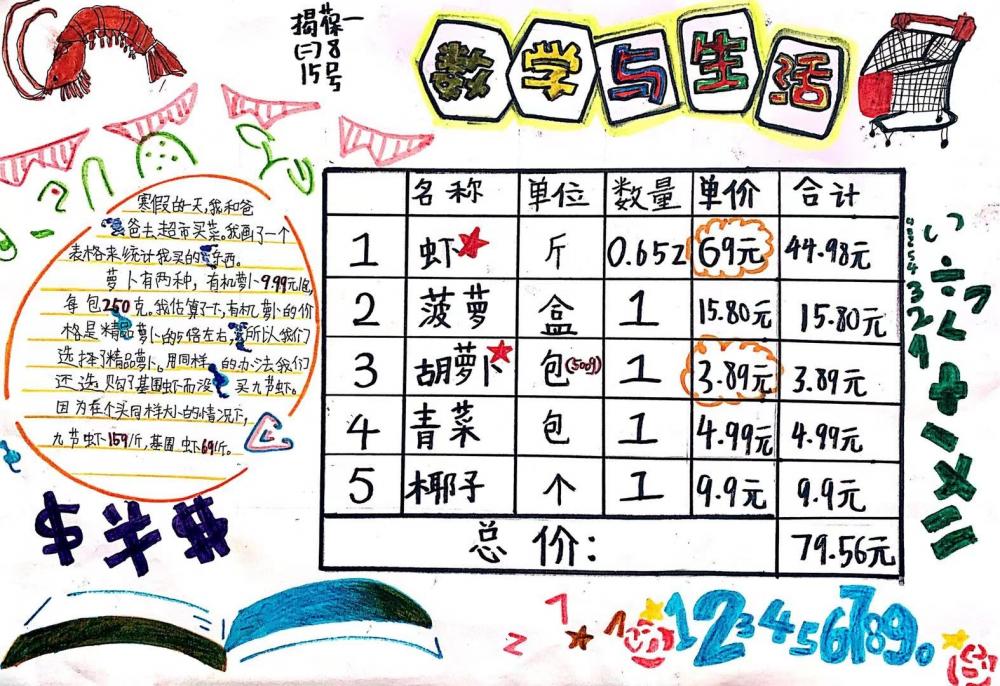 揭葆一
(二)8
15号
数学与生活
寒假的一天,我和爸
爸去超市买菜。我画了一个
表格来统计我买的东西。
萝卜有两种,有机萝卜9.99元/包,
每包250克。我估算了一下,有机萝卜的价
格是精品萝卜的5倍左右,所以我们
选择了精品萝卜。用同样的办法我们
还选购了基围虾而没买九节虾。
因为在个头同样大小的情况下,
九节虾159/斤,基围虾69/斤。
名称 单位 数量 单价 合计
1 虾 斤 0.652 69元 44.98元
2 菠萝 盒 1 15.80元 15.80元
3 胡萝卜 包(500g) 1 3.89元 3.89元
4 青菜 包 1 4.99元 4.99元
5 椰子 个 1 9.9元 9.9元
总价: 79.56元
÷
<
+
-
×
=
$
1 2 3 4 5 6 7 8 9 0